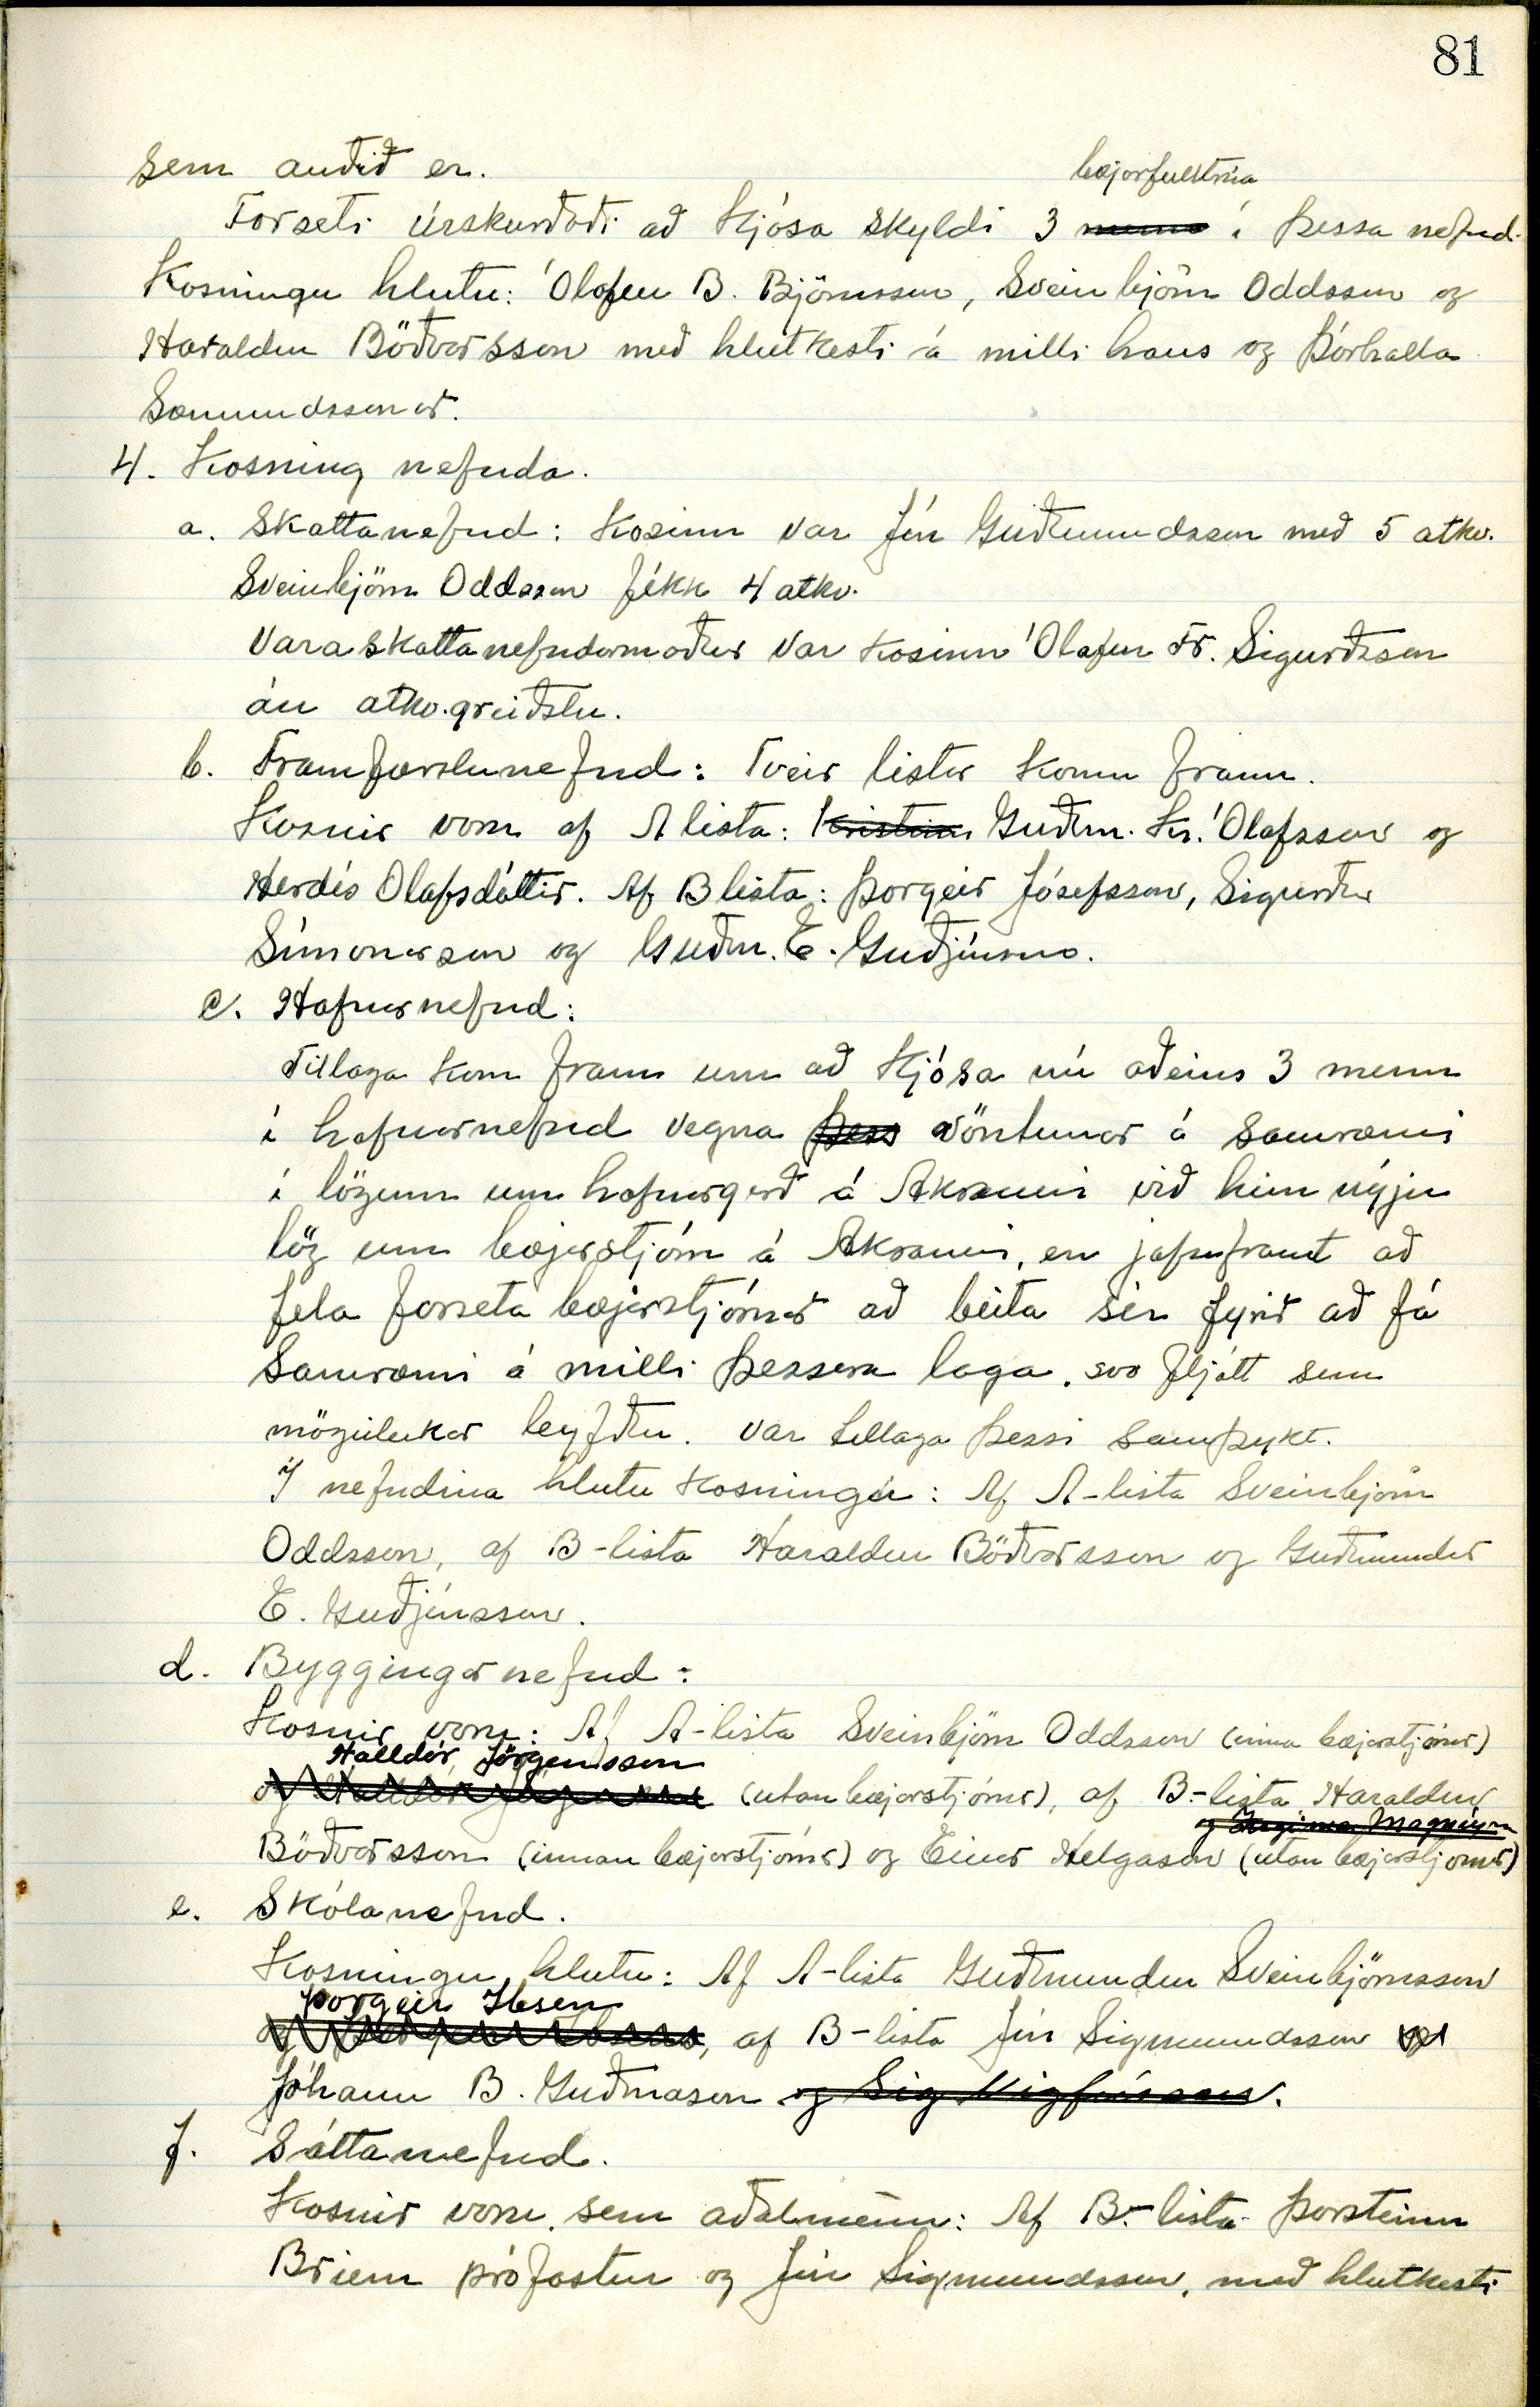 81
sem auðið er.
bæjarfulltrúa
Forseti úrskurðaði að kjósa skyldi 3 menn í þessa nefnd.
Kosningu hlutu: Ólafur B. Björnsson, Sveinbjörn Oddsson og
Haraldur Böðvarsson með hlutkesti á milli hans og Þórhalla
Sæmundssonar.
4. Kosning nefnda.
a. Skattanefnd: Kosinn var Jón Guðmundsson með 5 atkv.
Sveinbjörn Oddsson fékk 4 atkv.
Varaskattanefndarmaður var kosinn Ólafur Fr. Sigurðsson
án atkv.greiðslu.
b. Framfærslunefnd: Tveir listar komu fram.
Kosnir voru af A lista: Kristinn Guðm. Kr. Ólafsson og
Herdís Ólafsdóttir. Af B lista: Þorgeir Jósefsson, Sigurður
Símonarson og Guðm. E. Guðjónsson.
c. Hafnarnefnd:
Tillaga kom fram um að kjósa nú aðeins 3 menn
í hafnarnefnd vegna þess vöntunar á samræmi
í lögum um hafnargerð á Akranesi við hin nýju
lög um bæjarstjórn á Akranesi, en jafnframt að
fela forseta bæjarstjórnar að beita sér fyrir að fá
samræmi á milli þessara laga, svo fljótt sem
möguleikar leyfðu. Var tillaga þessi samþykt.
Í nefndina hlutu kosningu: Af A-lista Sveinbjörn
Oddsson, af B-lista Haraldur Böðvarsson og Guðmundur
E. Guðjónsson.
d. Byggingarnefnd:
Kosnir voru: Af A-lista Sveinbjörn Oddsson (innan bæjarstjórnar)
Halldór Jörgensson
og Halldór Jörgensson (utan bæjarstjórnar), af B-lista Haraldur
og Ingimar Magnússon
Böðvarsson (innan bæjarstjórnar) og Einar Helgason (utan bæjarstjórnar)
e. Skólanefnd.
Kosningu hlutu: Af A-lista Guðmundur Sveinbjörnsson
Þorgeir Ibsen
og Þorgeir Ibsen, af B-lista Jón Sigmundsson og
Jóhann B. Guðnason og Sig Vigfússon.
f. Sáttanefnd.
Kosnir voru sem aðalmenn: Af B-lista Þorsteinn
Briem prófastur og Jón Sigmundsson, með hlutkesti